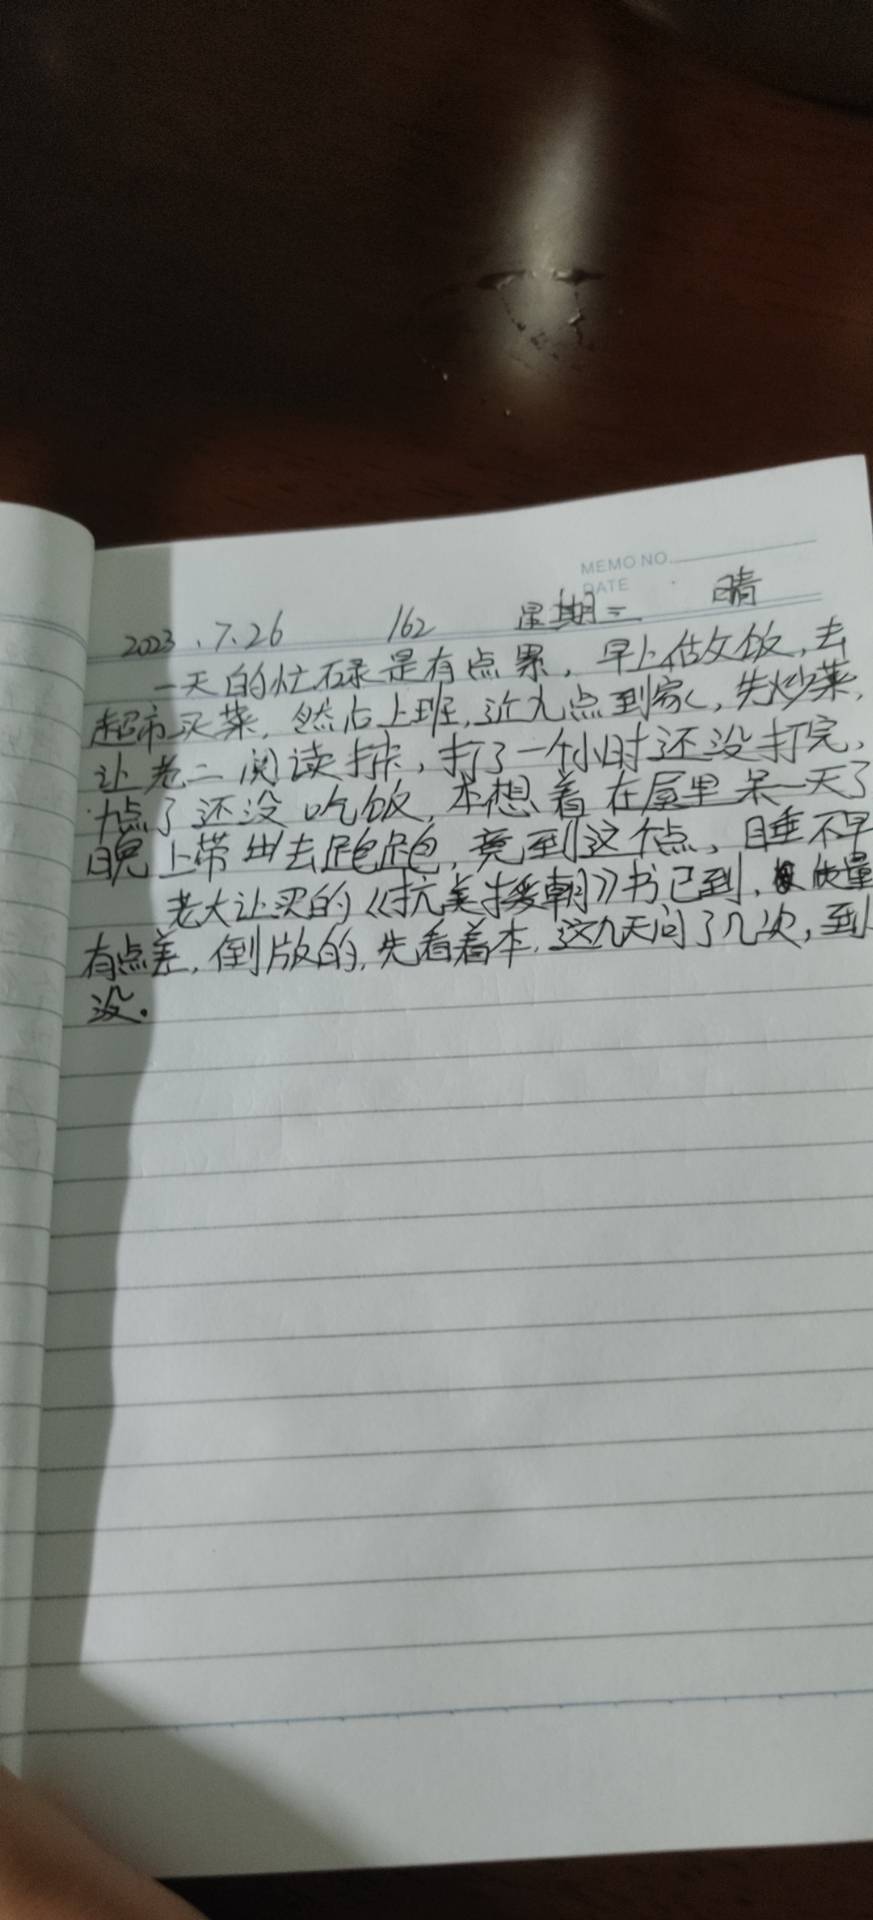 MEMO NO.
DATE
2023.7.26 162 星期三 晴
一天的忙碌是有点累，早上做饭，去
超市买菜，然后上班，近九点到家，先炒菜，
让老二阅读打卡，打了一个小时还没打完，
十点了还没吃饭，本想着在屋里呆一天了
晚上带出去跑跑，竟到这个点，睡不早
老大让买的《抗美援朝》书已到，质量
有点差，倒版的，先看着本，这几天问了几次，到
没。